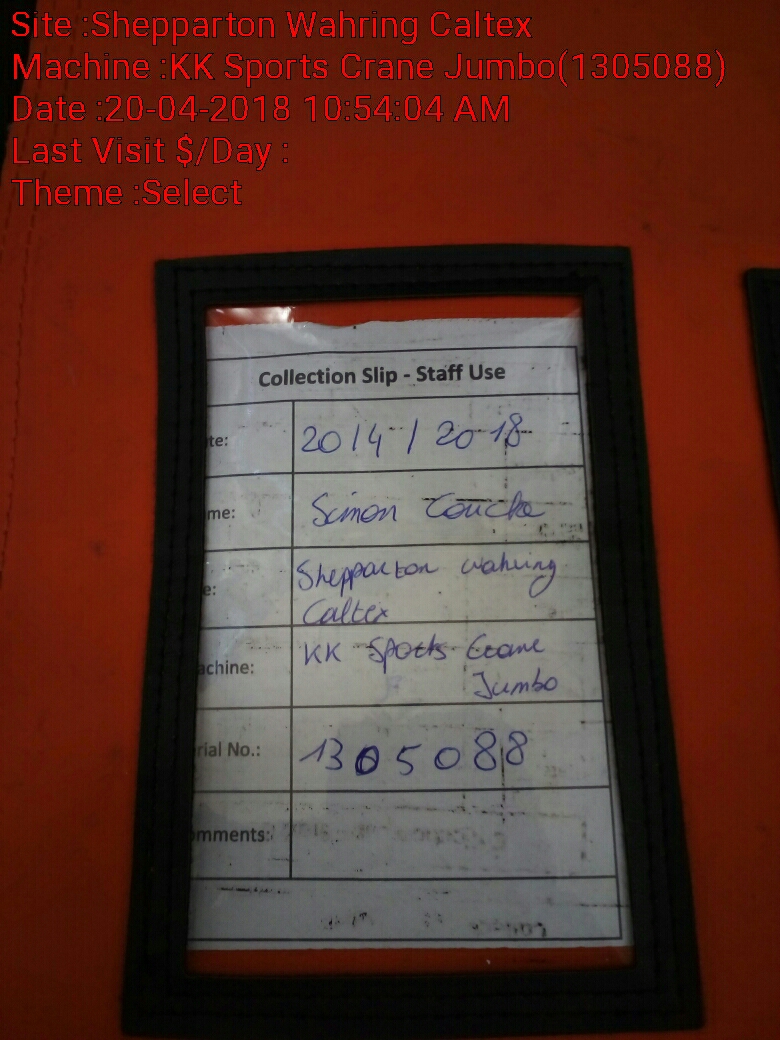 Site :Shepparton Wahring Caltex
Machine :KK Sports Crane Jumbo(1305088)
Date :20-04-2018 10:54:04 AM
Last Visit $/Day :
Theme :Select
Collection Slip - Staff Use
te: 20/4/2018
me: Simon Coucke
e: Shepparton wahring
Caltex
achine: KK Sports Crane
Jumbo
rial No.: 1305088
omments: